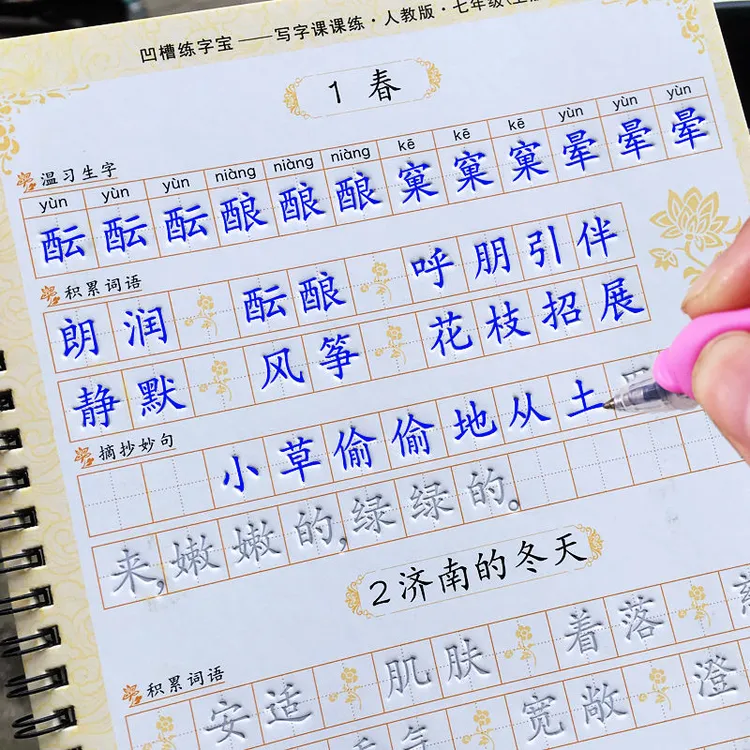 凹槽练字宝——写字课课练·人教版·七年级(上
1 春
温习生字
yùn yùn yùn niàng niàng niàng kē kē kē yùn yùn yùn
酝 酝 酝 酿 酿 酿 窠 窠 窠 晕 晕 晕
积累词语
朗润 酝酿 呼朋引伴
静默 风筝 花枝招展
摘抄妙句
小草偷偷地从土
来,嫩嫩的,绿绿的。
2 济南的冬天
积累词语
肌肤 着落
安适 宽敞 澄